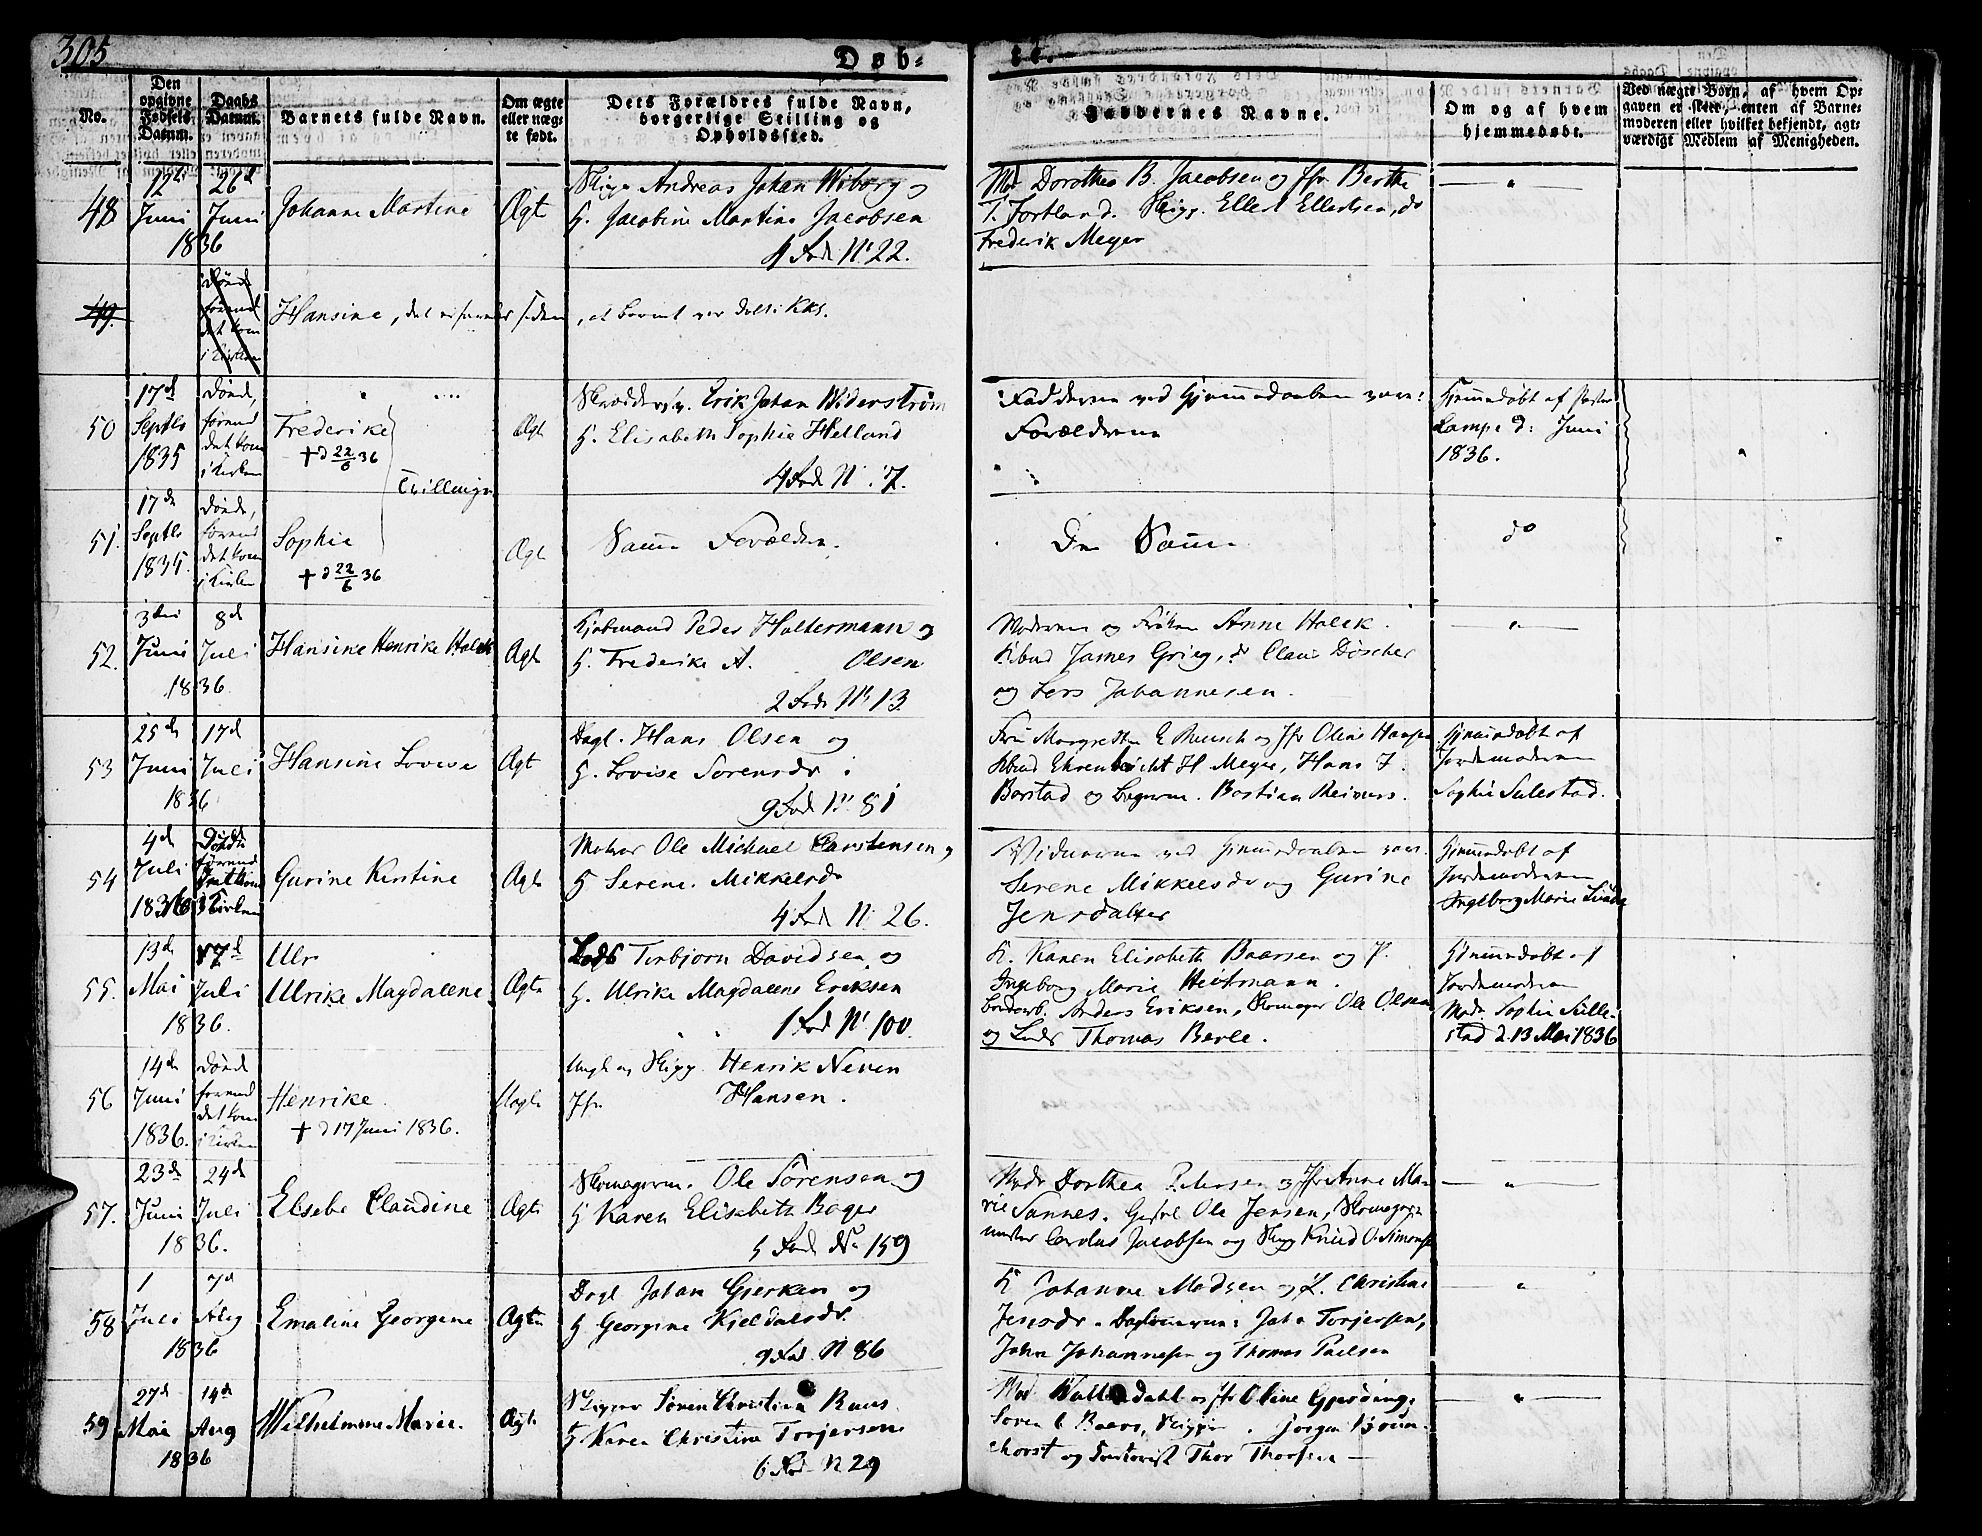 305
Døb-
te.
No.
Den opgivne Fødsels Datum.
Daabs Datum.
Barnets fulde Navn.
Om ægte eller uægte født.
Dets Forældres fulde Navn, borgerlige Stilling og Opholdssted.
Faddernes Navne.
Om og af hvem hjemmedøbt.
Ved uægte Born, af hvem Opgaven er skeet, enten af Barnemoderen eller hvilket bekjendt, agtværdigt Medlem af Menigheden.
48
12te Juni 1836
26d Juni
Johanne Martine
Ægt
Andreas Johan Wiborg og
H. Jacobine Martine Jacobsen
1 Fød N. 22.
Mad. Dorothea B. Jacobsen og Jfr. Berthe
T. Jortland. Skipp. Ellert Ellertsen, do
Frederik Meyer
49.
Døde førend det kom i Kirken
Hansine, siden, at Barnet var
50
17d Septbr 1835
Døde, førend det kom i Kirken
Frederike
† d 22/6 36
Tvillinger
Ægt
Erik Johan Widerstrøm
H. Elisabeth Sophie Helland
4 Fød N. 7.
Fadderne ved Hjemmedaaben vare:
Forældrene
Hjemmedøbt af Pastor
Lampe d: Juni
1836.
51.
17de Septbr 1835.
Døde, førend det kom i Kirken
Sophie
† d 22/6 36
Ægt
Samme Forældre.
De Samme
do
52.
3die Juni 1836.
8d Juli
Hansine Henrike Holck
Ægt
Kjøbmand Peder Holtermann og
H. Frederike A. Olsen
2 Fød N. 13.
Moderen og Frøken Anne Holck.
James Grieg, do Claus Døscher
og Lers Johannesen.
53
25de Juni 1836
17d Juli
Hansine Lovise
Ægt
Dagl. Hans Olsen og
H. Lovise Sørensdr.
9 Fød N. 81
Fru Margrethe E Reusch og Jfr Oline
H Meyer, Hans J.
Borstad og Bastian
Hjemmedøbt af
Jordemoderen
Sophie Sulestad.
54
4d Juli 1836
Døde førend det kom i Kirken
Gurine Kirstine
Ægt
Matros Ole Michael Carstensen og
H Serene. Mikkelsdr
4 Fød N. 26.
Vidnerne ved Hjemmedaaben vare.
Serene Mikkelsdr og Gurine
Jensdatter
Hjemmedøbt af
Jordemoderen
Ingeborg Marie
55.
13d Mai 1836.
17d Juli
Ulr
Ulrike Magdalene
Ægte
Lods Torbjørn Davidsen og
H. Ulrike Magdalene Eriksen
1 Fød N. 100.
K. Karen Elisabeth Baarsen og P.
Ingeborg Marie
Anders Eriksen, Skomager Ole Olsen
og Lods Thomas Berle.
Hjemmedøbt af
Jordemoderen
Mad. Sophie Sulle-
stad d. 13 Mai 1836
56
14de Juni 1836.
Døde førend det kom i Kirken
Henrike
† d 17 Juni 1836.
Uægte
Ungk og Skipp. Henrik Neven
Hansen.
Jfr.
57.
23de Juni 1836.
24de Juli
Elsebe Claudine
Ægte
Skomagerm. Ole Sørensen og
H Karen Elisabeth Bager
5 Fød No 159
Mad. Dorthea Petersen og Jfr Anne Ma-
rie Sannes. Ole Jensen, Skomager
mester Carolus Jacobsen og Skipp Knud O. Simonsen
58
1 Juli 1836
7d Aug
Emaline Georgine
Ægte
Dagl Johan Gjerken og
H Georgine Kjeldalsdr.
9 Fød. N. 86
K Johanne Madsen og P. Christine
Jensdr. Torjersen,
John Johannesen og Thomas Paulsen
59
27d Mai 1836
14de Aug
Wilhelmine Marie.
Ægte
Skipper Søren Christian
H Karen Christine Torjersen
6 Fød N 29
Mad og Jfr Oline
Søren C Skipper. Jørgen
og Thor Thorsen